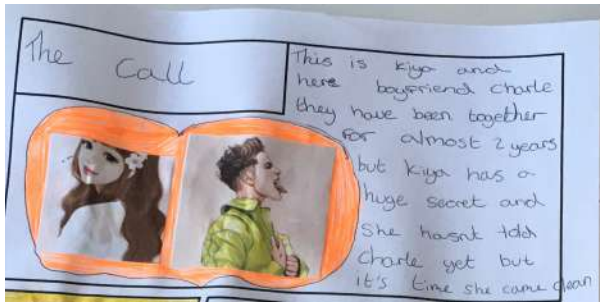 The Call
This is Kiya and
here boyfriend charle
they have been together
for almost 2 years
but Kiya has a
huge secret and
she hasnt told
Charle yet but
it's time she came clean